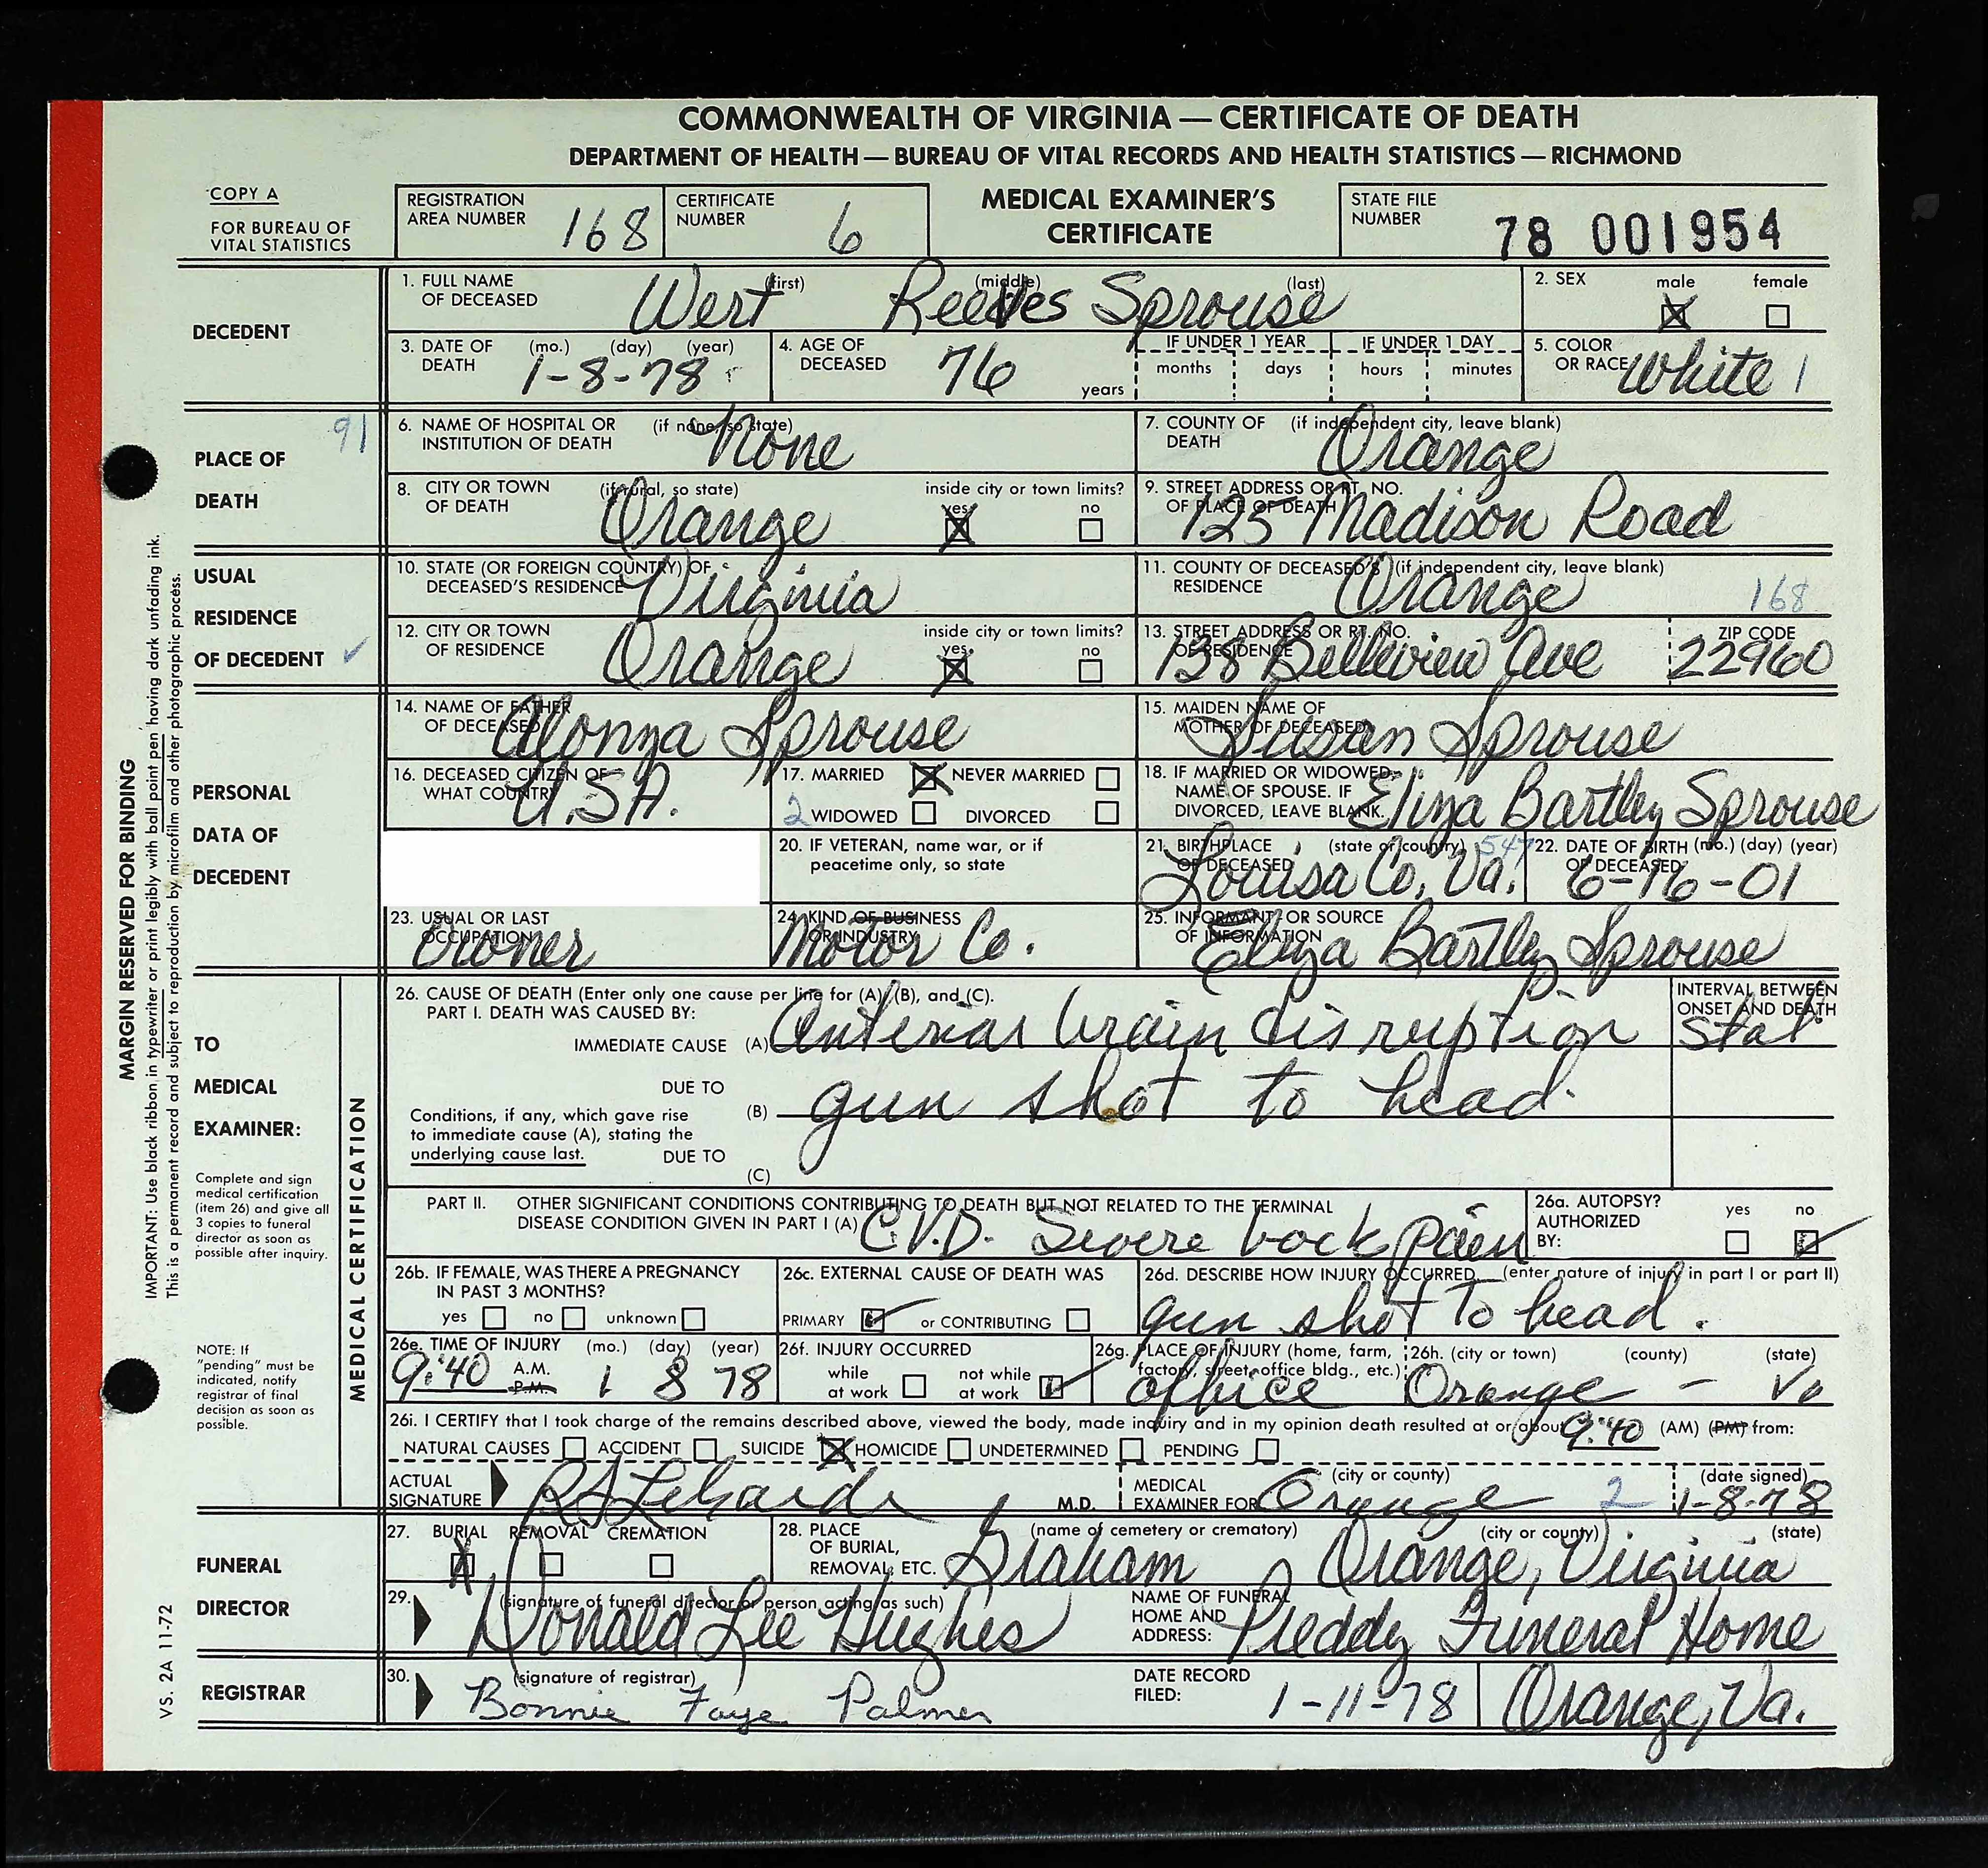 COMMONWEALTH OF VIRGINIA — CERTIFICATE OF DEATH
DEPARTMENT OF HEALTH — BUREAU OF VITAL RECORDS AND HEALTH STATISTICS — RICHMOND
COPY A
FOR BUREAU OF
VITAL STATISTICS
REGISTRATION
AREA NUMBER 168
CERTIFICATE
NUMBER 6
MEDICAL EXAMINER'S
CERTIFICATE
STATE FILE
NUMBER 78 001954
DECEDENT
1. FULL NAME (first) (middle) (last)
OF DECEASED Wert Reeves Sprouse
2. SEX male female
3. DATE OF (mo.) (day) (year)
DEATH 1-8-78
4. AGE OF
DECEASED 76 years
IF UNDER 1 YEAR
months days
IF UNDER 1 DAY
hours minutes
5. COLOR
OR RACE White 1
PLACE OF
DEATH
91
6. NAME OF HOSPITAL OR (if none, so state)
INSTITUTION OF DEATH None
7. COUNTY OF (if independent city, leave blank)
DEATH Orange
8. CITY OR TOWN (if rural, so state) inside city or town limits?
OF DEATH Orange yes no
9. STREET ADDRESS OR RT. NO.
OF PLACE OF DEATH 125 Madison Road
USUAL
RESIDENCE
OF DECEDENT
10. STATE (OR FOREIGN COUNTRY) OF
DECEASED'S RESIDENCE Virginia
11. COUNTY OF DECEASED'S (if independent city, leave blank)
RESIDENCE Orange 168
12. CITY OR TOWN inside city or town limits?
OF RESIDENCE Orange yes no
13. STREET ADDRESS OR RT. NO.
OF RESIDENCE 138 Belleview Ave
ZIP CODE
22960
PERSONAL
DATA OF
DECEDENT
14. NAME OF FATHER
OF DECEASED Alonza Sprouse
15. MAIDEN NAME OF
MOTHER OF DECEASED Susan Sprouse
16. DECEASED CITIZEN OF
WHAT COUNTRY U.S.A.
17. MARRIED NEVER MARRIED
2 WIDOWED DIVORCED
18. IF MARRIED OR WIDOWED
NAME OF SPOUSE. IF
DIVORCED, LEAVE BLANK. Eliza Bartley Sprouse
20. IF VETERAN, name war, or if
peacetime only, so state
21. BIRTHPLACE (state or country) 547
OF DECEASED Louisa Co, Va.
22. DATE OF BIRTH (mo.) (day) (year)
OF DECEASED 6-16-01
23. USUAL OR LAST
OCCUPATION Owner
24. KIND OF BUSINESS
OR INDUSTRY Motor Co.
25. INFORMANT OR SOURCE
OF INFORMATION Eliza Bartley Sprouse
TO
MEDICAL
EXAMINER:
Complete and sign
medical certification
(item 26) and give all
3 copies to funeral
director as soon as
possible after inquiry.
NOTE: If
"pending" must be
indicated, notify
registrar of final
decision as soon as
possible.
MEDICAL CERTIFICATION
26. CAUSE OF DEATH (Enter only one cause per line for (A), (B), and (C).
PART I. DEATH WAS CAUSED BY:
IMMEDIATE CAUSE (A) Anterior brain disruption
INTERVAL BETWEEN
ONSET AND DEATH
stat.
DUE TO
(B) gun shot to head.
Conditions, if any, which gave rise
to immediate cause (A), stating the
underlying cause last. DUE TO
(C)
PART II. OTHER SIGNIFICANT CONDITIONS CONTRIBUTING TO DEATH BUT NOT RELATED TO THE TERMINAL
DISEASE CONDITION GIVEN IN PART I (A) C.V.D. Severe back pain
26a. AUTOPSY? yes no
AUTHORIZED
BY:
26b. IF FEMALE, WAS THERE A PREGNANCY
IN PAST 3 MONTHS?
yes no unknown
26c. EXTERNAL CAUSE OF DEATH WAS
PRIMARY or CONTRIBUTING
26d. DESCRIBE HOW INJURY OCCURRED (enter nature of injury in part I or part II)
gun shot to head.
26e. TIME OF INJURY (mo.) (day) (year)
9:40 A.M. P.M. 1 8 78
26f. INJURY OCCURRED
while at work not while at work
26g. PLACE OF INJURY (home, farm,
factory, street, office bldg., etc.)
office
26h. (city or town) (county) (state)
Orange - Va
26i. I CERTIFY that I took charge of the remains described above, viewed the body, made inquiry and in my opinion death resulted at or about 9:40 (AM) (PM) from:
NATURAL CAUSES ACCIDENT SUICIDE HOMICIDE UNDETERMINED PENDING
ACTUAL
SIGNATURE M.D.
MEDICAL (city or county)
EXAMINER FOR Orange 2
(date signed)
1-8-78
FUNERAL
DIRECTOR
27. BURIAL REMOVAL CREMATION
28. PLACE (name of cemetery or crematory) (city or county) (state)
OF BURIAL,
REMOVAL, ETC. Graham Orange, Virginia
29. (signature of funeral director or person acting as such)
Donald Lee Hughes
NAME OF FUNERAL
HOME AND
ADDRESS: Preddy Funeral Home
REGISTRAR
30. (signature of registrar)
Bonnie Faye Palmer
DATE RECORD
FILED: 1-11-78
Orange, Va.
MARGIN RESERVED FOR BINDING
IMPORTANT: Use black ribbon in typewriter or print legibly with ball point pen having dark unfading ink.
This is a permanent record and subject to reproduction by microfilm and other photographic process.
VS. 2A 11-72